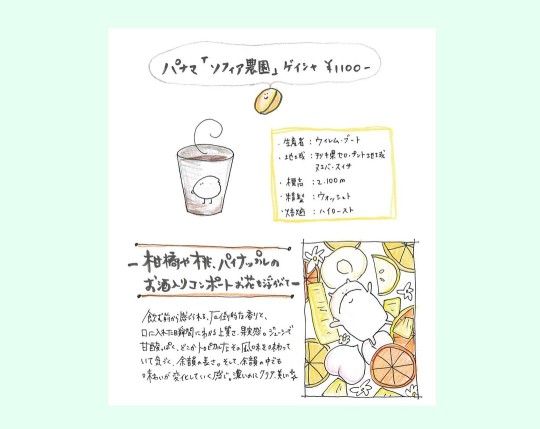 パナマ「ソフィア農園」ゲイシャ ¥1100-
・生産者：ウィレム・ブート
・地域：チリキ県セロ・プンタ地域
ヌエバ・スイサ
・標高：2,100m
・精製：ウォッシュト
・焙煎：ハイロースト
- 柑橘や桃、パイナップルの
お酒入りコンポート お花を浮かべて -
飲む前から感じられる、圧倒的な香りと、
口に入れた瞬間にわかる上質さ、果実感。ジューシーで
甘酸っぱく、どこかトロピカルなその風味を味わって
いて気づく、余韻の長さ。そして、余韻の中でも
味わいが変化していく感じ。濃いのにクリア。美しい